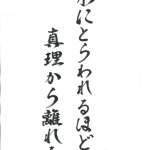 にとらわれるほど
真理から離れる